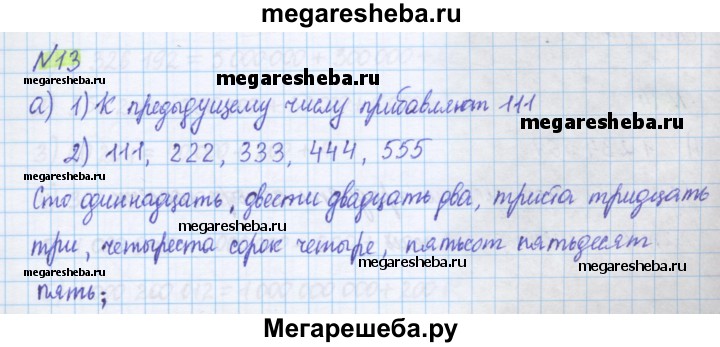 megaresheba.ru
№13
megaresheba.ru
megaresheba.ru
а) 1) К предыдущему числу прибавляют 111
megaresheba.ru
2) 111, 222, 333, 444, 555
megaresheba.ru
Сто одиннадцать, двести двадцать два, триста тридцать
megaresheba.ru
три, четыреста сорок четыре, пятьсот пятьдесят
megaresheba.ru
megaresheba.ru
megaresheba.ru
пять;
Мегарешеба.ру